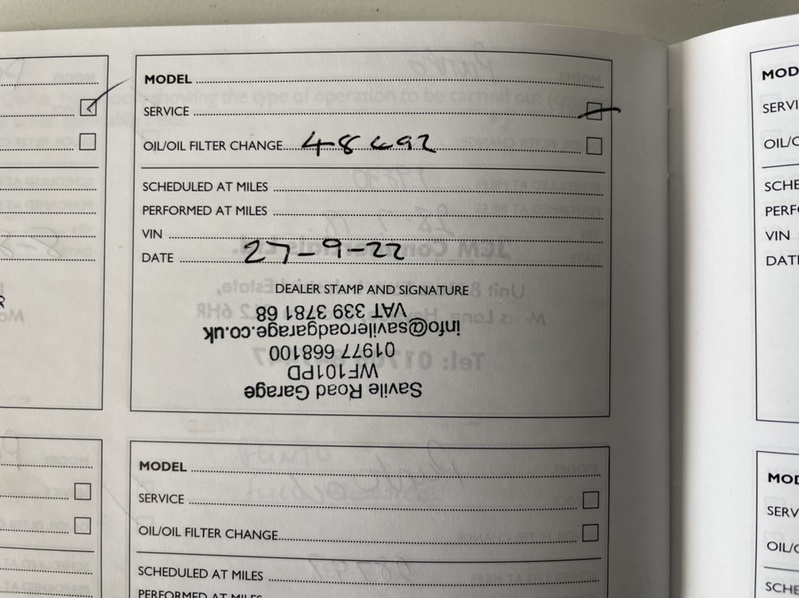 MODEL
SERVICE
OIL/OIL FILTER CHANGE 48692
SCHEDULED AT MILES
PERFORMED AT MILES
VIN
DATE 27-9-22
DEALER STAMP AND SIGNATURE
Savile Road Garage
WF101PD
01977 668100
info@savileroadgarage.co.uk
VAT 339 3781 68
MODEL
SERVICE
OIL/OIL FILTER CHANGE
SCHEDULED AT MILES
PERFORMED AT MILES
MOD
SERVI
OIL/C
SCHE
PERF
VIN
DATE
MOD
SERV
OIL/C
SCHE